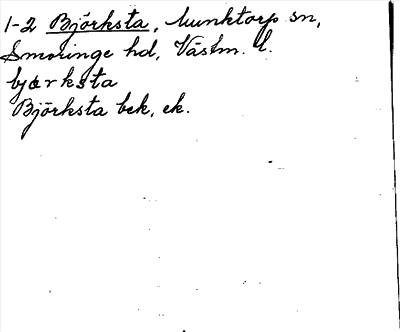 1-2 Björksta, Munktorp sn,
Snevringe hd, Västm. l.
bjærksta
Björksta bek, ek.